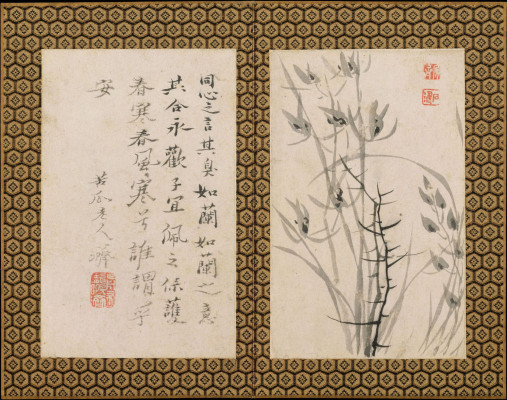 同心之言其臭如蘭如蘭之意
其合永歡子宜佩之保護
春寒春風寒兮誰謂乎
安
苦瓜老人濟